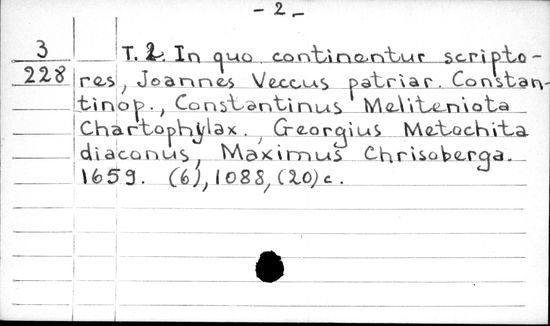 - 2 -
3
228
T. 2. In quo continentur scripto-
res, Joannes Veccus patriar. Constan-
tinop., Constantinus Meliteniota
Chartophylax., Georgius Metochita
diaconus, Maximus Chrisoberga.
1659. (6), 1088, (20) c.